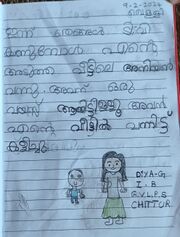 9-2-2024
വെള്ളി
ഇന്ന് ഞങ്ങൾ ടിവി
കണ്ടുമ്പോൾ എന്റെ
അടുത്ത വീട്ടിലെ അനിയൻ
വന്നു. അവന് ഒരു
വയസ് ആയിട്ടുള്ളൂ അവൻ
എന്റെ വീട്ടിൽ വന്നിട്ട്
കളിച്ചു.
DIYA-G
I. B
G.V.L.P.S
CHITTUR